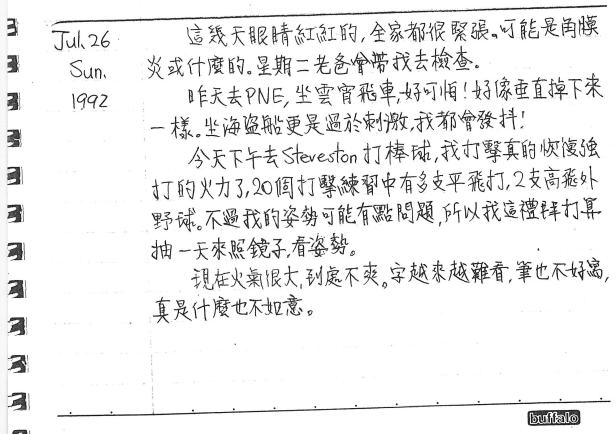 Jul. 26
Sun.
1992
這幾天眼睛紅紅的,全家都很緊張。可能是角膜
炎或什麼的。星期二老爸會帶我去檢查。
昨天去PNE,坐雲宵飛車,好可怕!好像垂直掉下來
一樣。坐海盜船更是過於刺激,我都會發抖!
今天下午去Steveston打棒球,我打擊真的恢復強
打的火力了,20個打擊練習中有多支平飛打,2支高飛外
野球。不過我的姿勢可能有點問題,所以我這禮拜打算
抽一天來照鏡子,看姿勢。
現在火氣很大,到處不爽。字越來越難看,筆也不好寫,
真是什麼也不如意。
buffalo